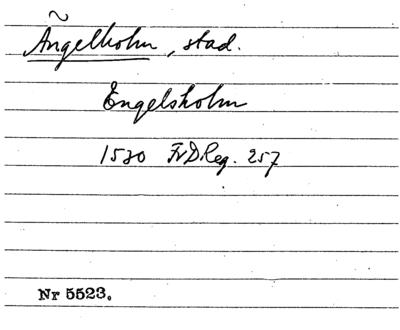 Ängelholm, stad.
Engelsholm
1530 FrDReg. 257
Nr 5523.